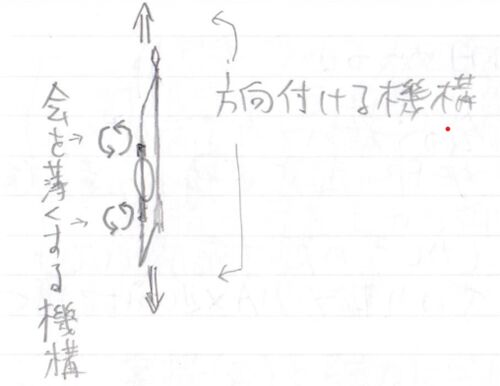 方向付ける機構
会を薄くする機構